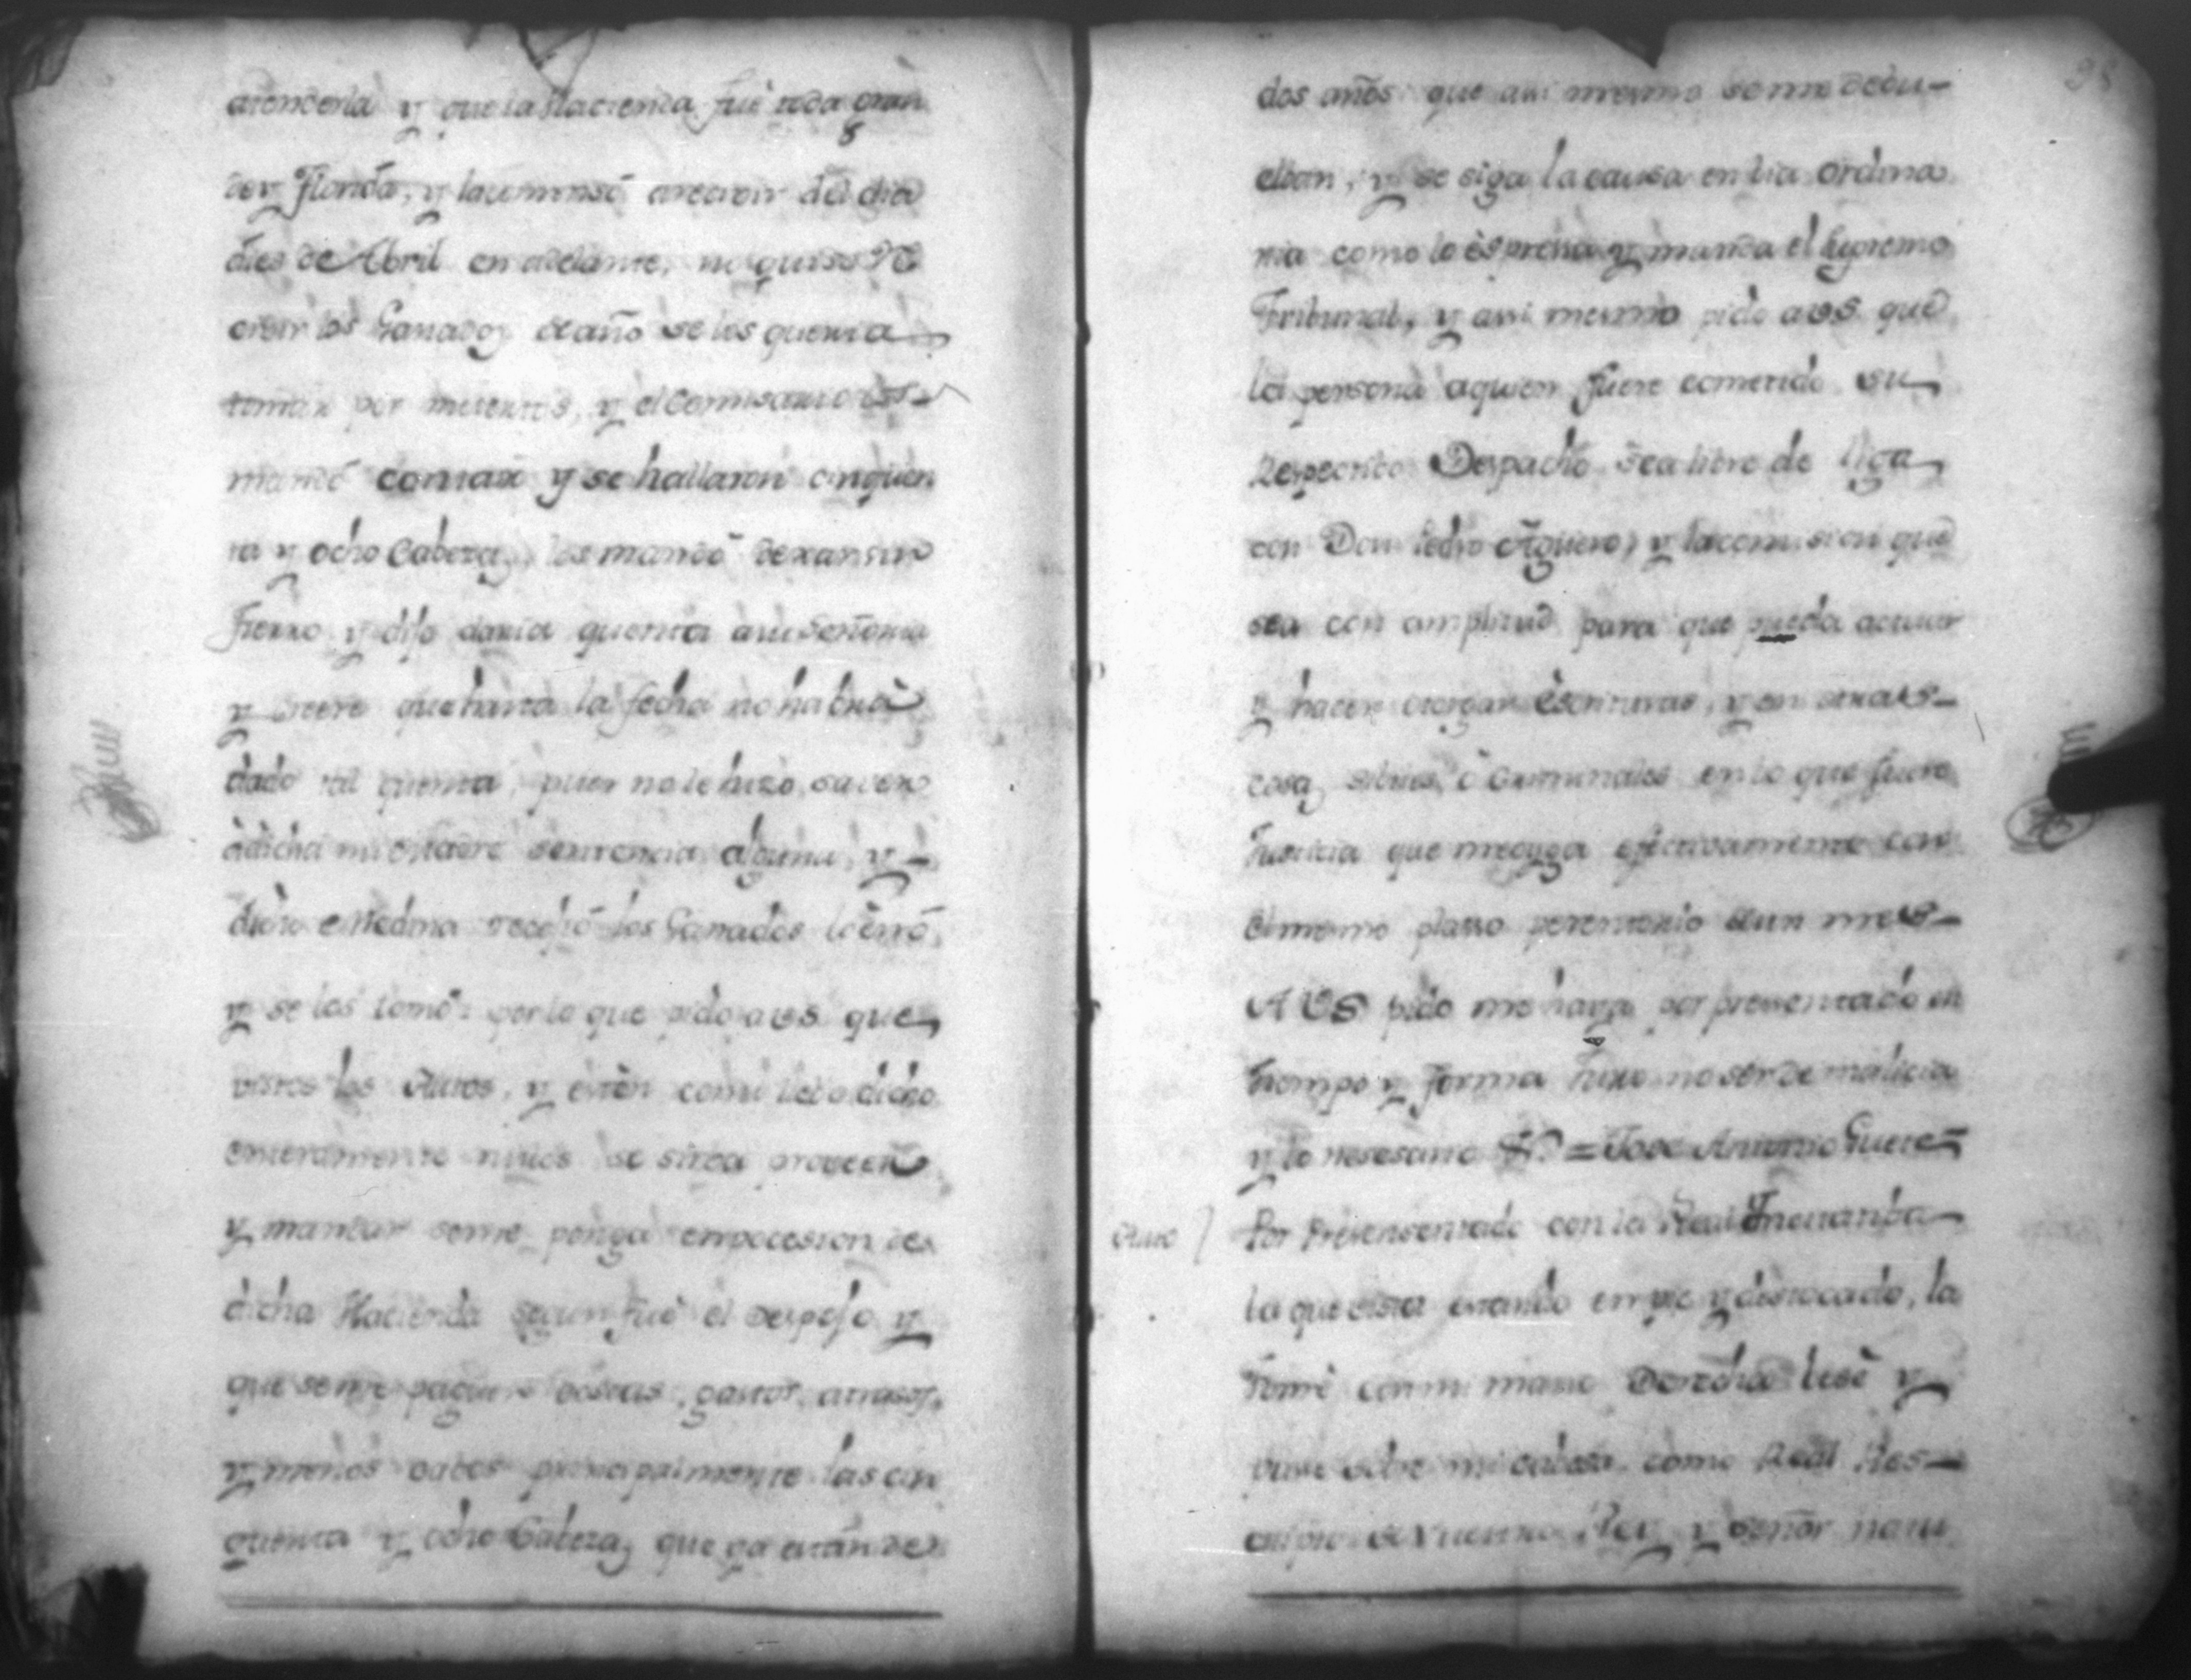 atenderla y que la Hacienda fué toda gran
de y Florida, y la comensó arecivir del dia
dies de Abril en adelante, no quiso re
civir los Ganados de año se los queria
tomar por muertos, y el Comisario los
mandó contar y se hallaron cinquen
ta y ocho Cabezas, los mandó dexar sin
fierro y dijo daria quenta a su señoria
y creere que hasta la fecha no habrá
dado tal quenta, pues no le hizo saver
a dicha mi Madre sentencia alguna, y
dicho Medina recojió los Ganados los erró,
y se los tomó: por lo que pido a VS. que
vistos los Autos, y esten como llebo dicho
enteramente nulos se sirva proveer
y mandar se me ponga em pocesion de
dicha Hacienda segun fué el despojo y
que se me paguen costas, gastos, atrasos,
y menos cabos principalmente las cin
quenta y ocho Cabezas que ya estan de
98
dos años que assi mesmo se me debu-
elban, y se siga la causa en bia ordina
ria como lo espresa y manda el Supremo
Tribunal, y assi mesmo pido a VS. que
la persona a quien fuere cometido su
Respectibo Despacho sea libre de liga
con Don Pedro Aguero, y la comision que
sea con amplitud para que pueda actuar
y hacer otorgar Escrituras, y en otras
cosas sibiles, ó Criminales en lo que fuere
Justicia que me oyga efectivamente con
el mesmo plasso perentorio de un mes
A VS pido me haya por presentado en
tiempo y forma Juro no ser de malicia
y lo nesesario &a. = Jose Antonio Guere
Auto
Por Presensentado con la Real
la que vista estando en pie y destocado, la
tomé con mi mano Derecha besé y
puse sobre mi cabesa como Real Res-
cripto de Nuestro Rey y Señor natu